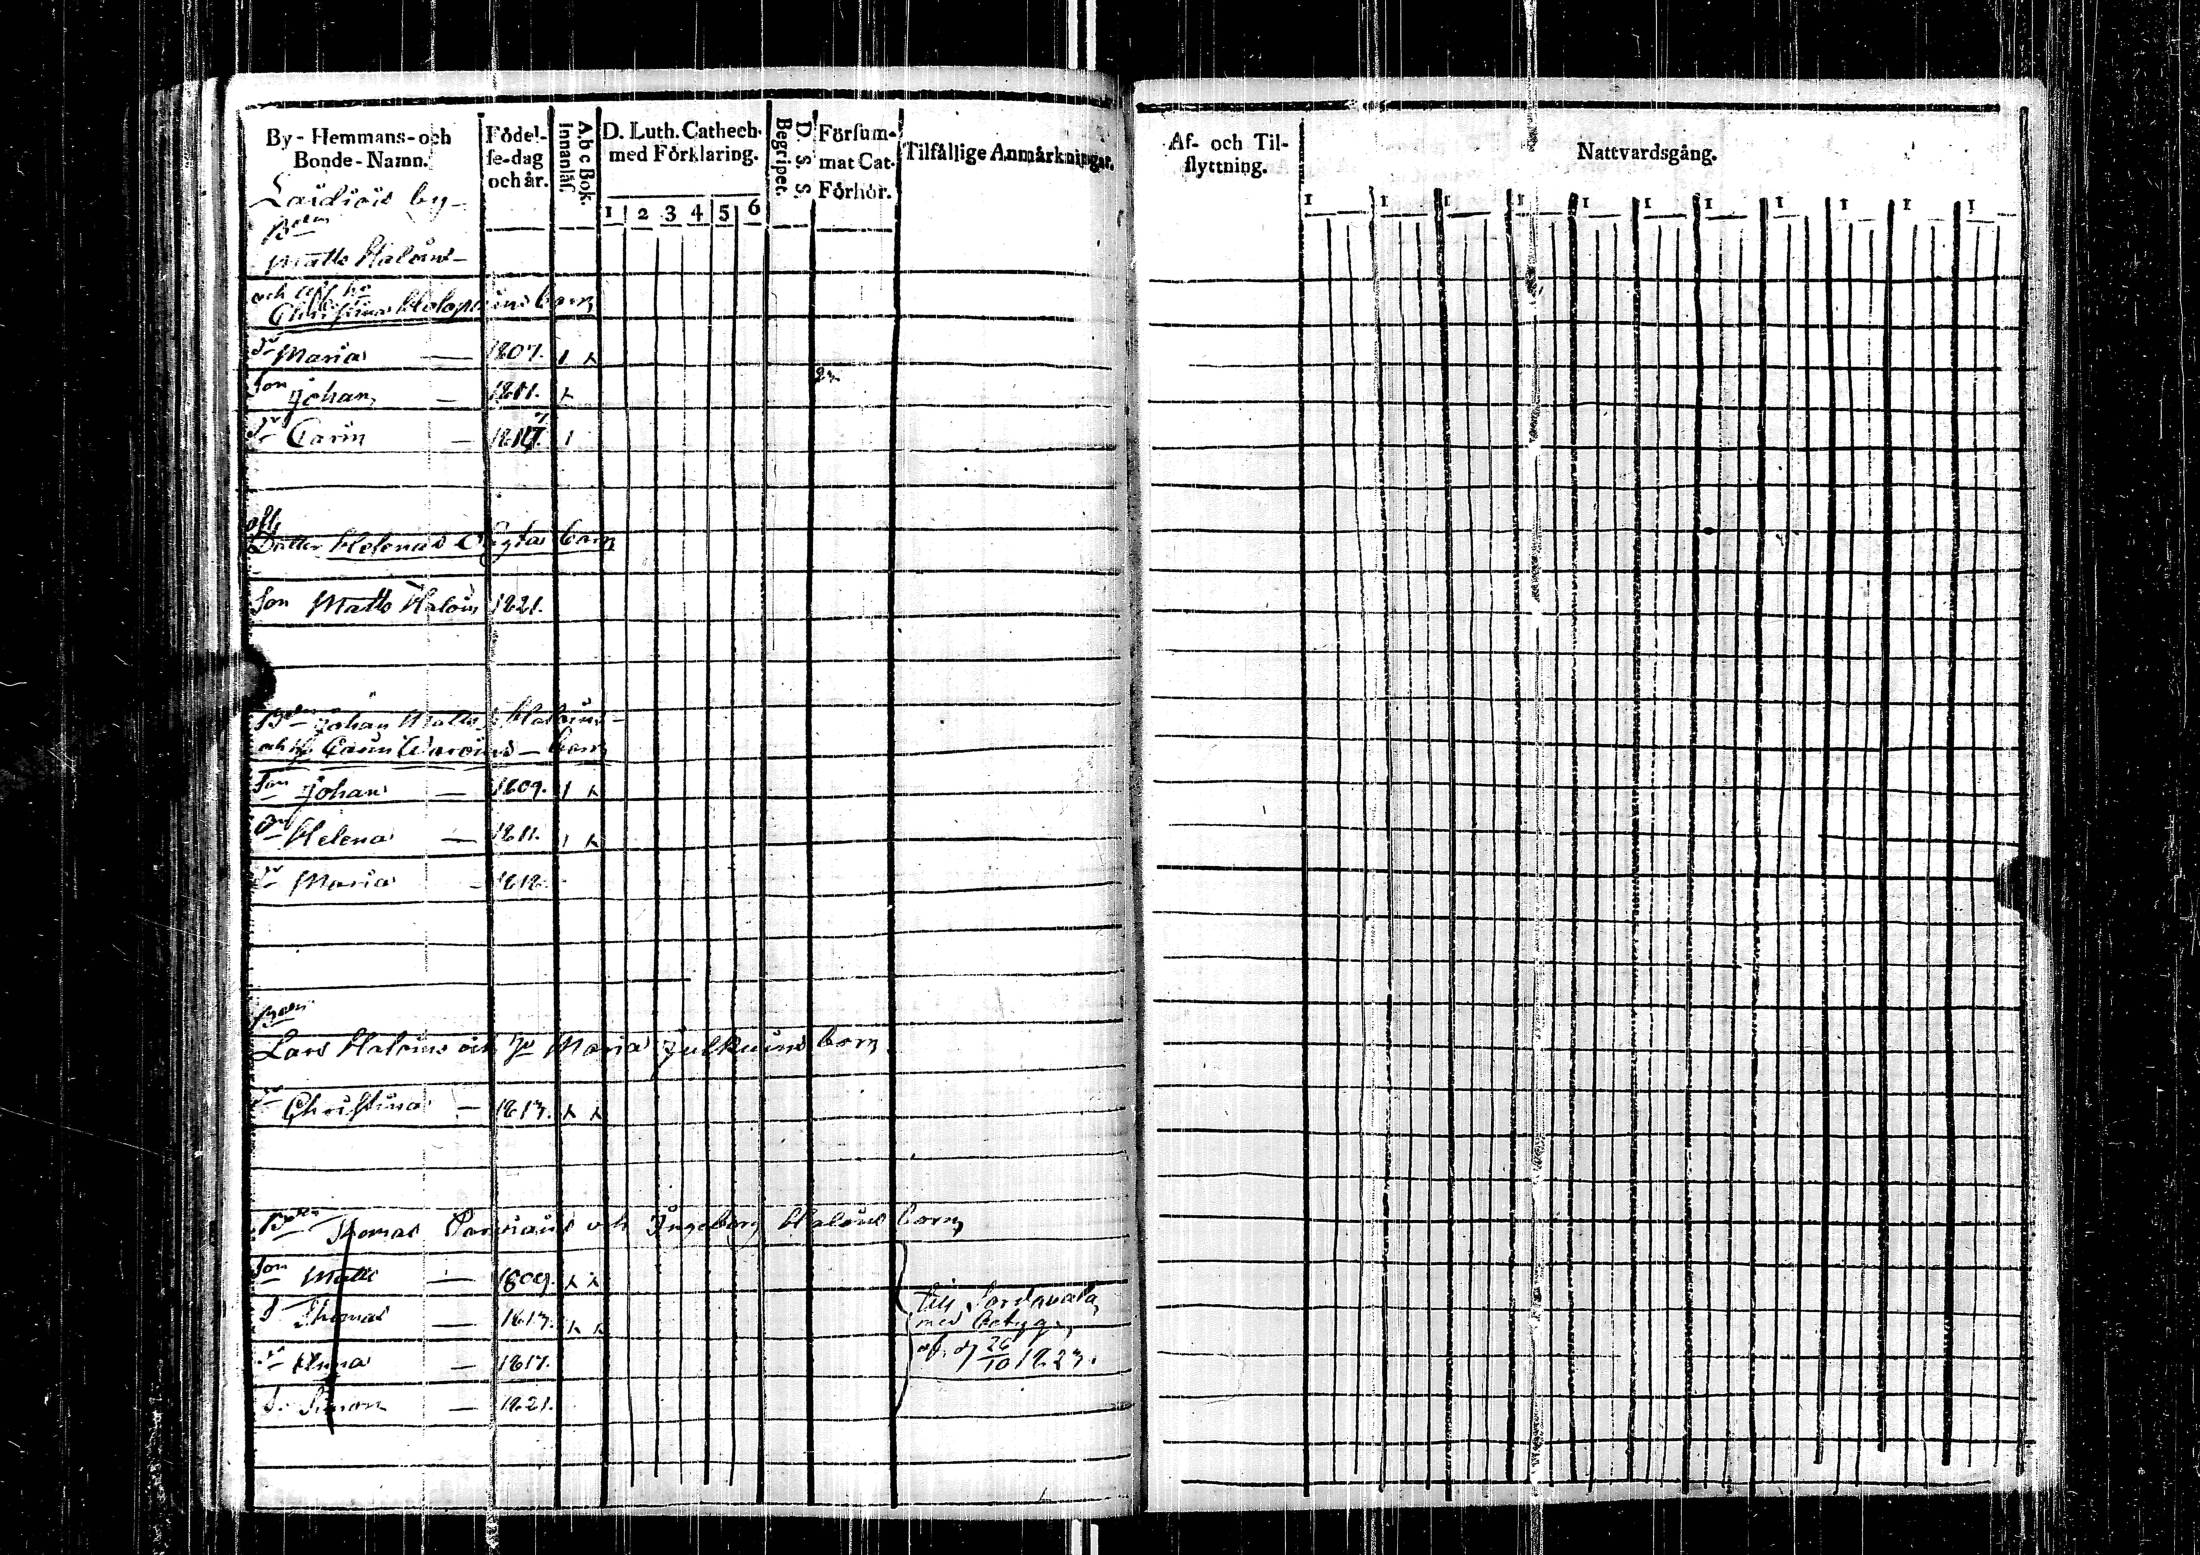 By-Hemmans-och Bonde-Namn.
Födel-se-dag och år.
A b c Bok. Innanläs.
D. Luth. Cathech. med Förklaring.
1 2 3 4 5 6
D. S. S. Begripet.
Försum-mat Cat-Förhör.
Tilfällige Anmärkningar.
Af- och Til-flyttning.
Nattvardsgång.
1 1 1 1 1 1 1 1 1 1 1
by
Bden
Matts Halóins
och
Christinas barn
Dr Maria — 1807.
Son Johan — 1811.
Dr Carin — 1817.
Dotter Helenas barn
Son Matts Halóin 1821.
Bden Johan Matts Halóins
och Carin barn
Son Johan — 1809.
Dr Helena — 1811.
Dr Maria — 1818
Bden
Lars Halóins och Maria Julkuins barn
Dr Christina — 1813.
Bden Thomas Parviains och Ingeborg Halóins barn
Son Matts — 1809.
S Thomas — 1813.
Dr Anna — 1817.
S. Simon — 1821.
till Sordavala
med betyg
af d 26/10 1823.